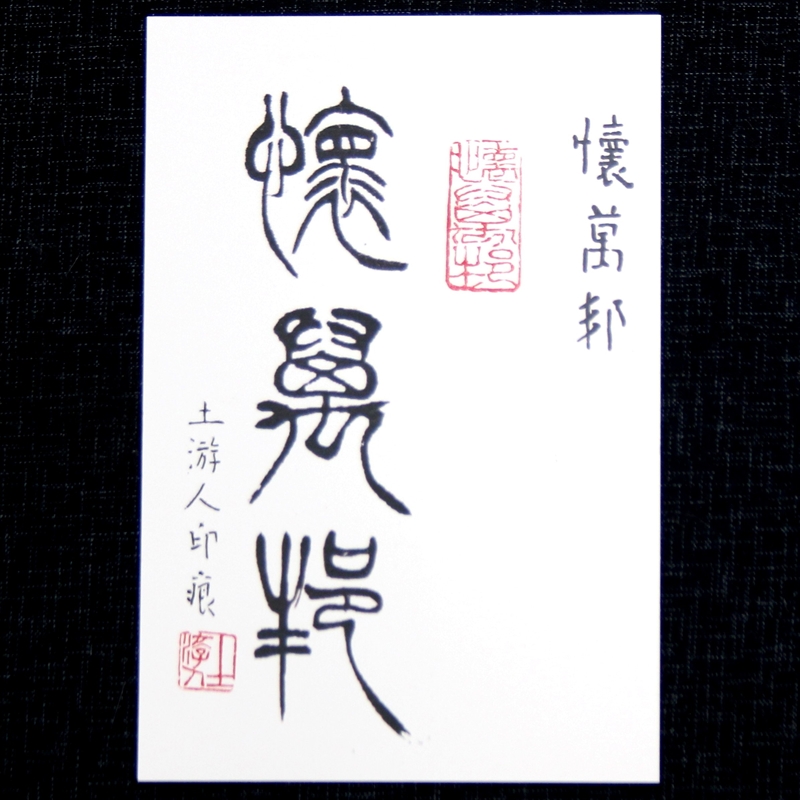 懷萬邦
懷萬邦
懷萬邦
土游人印痕
土游人